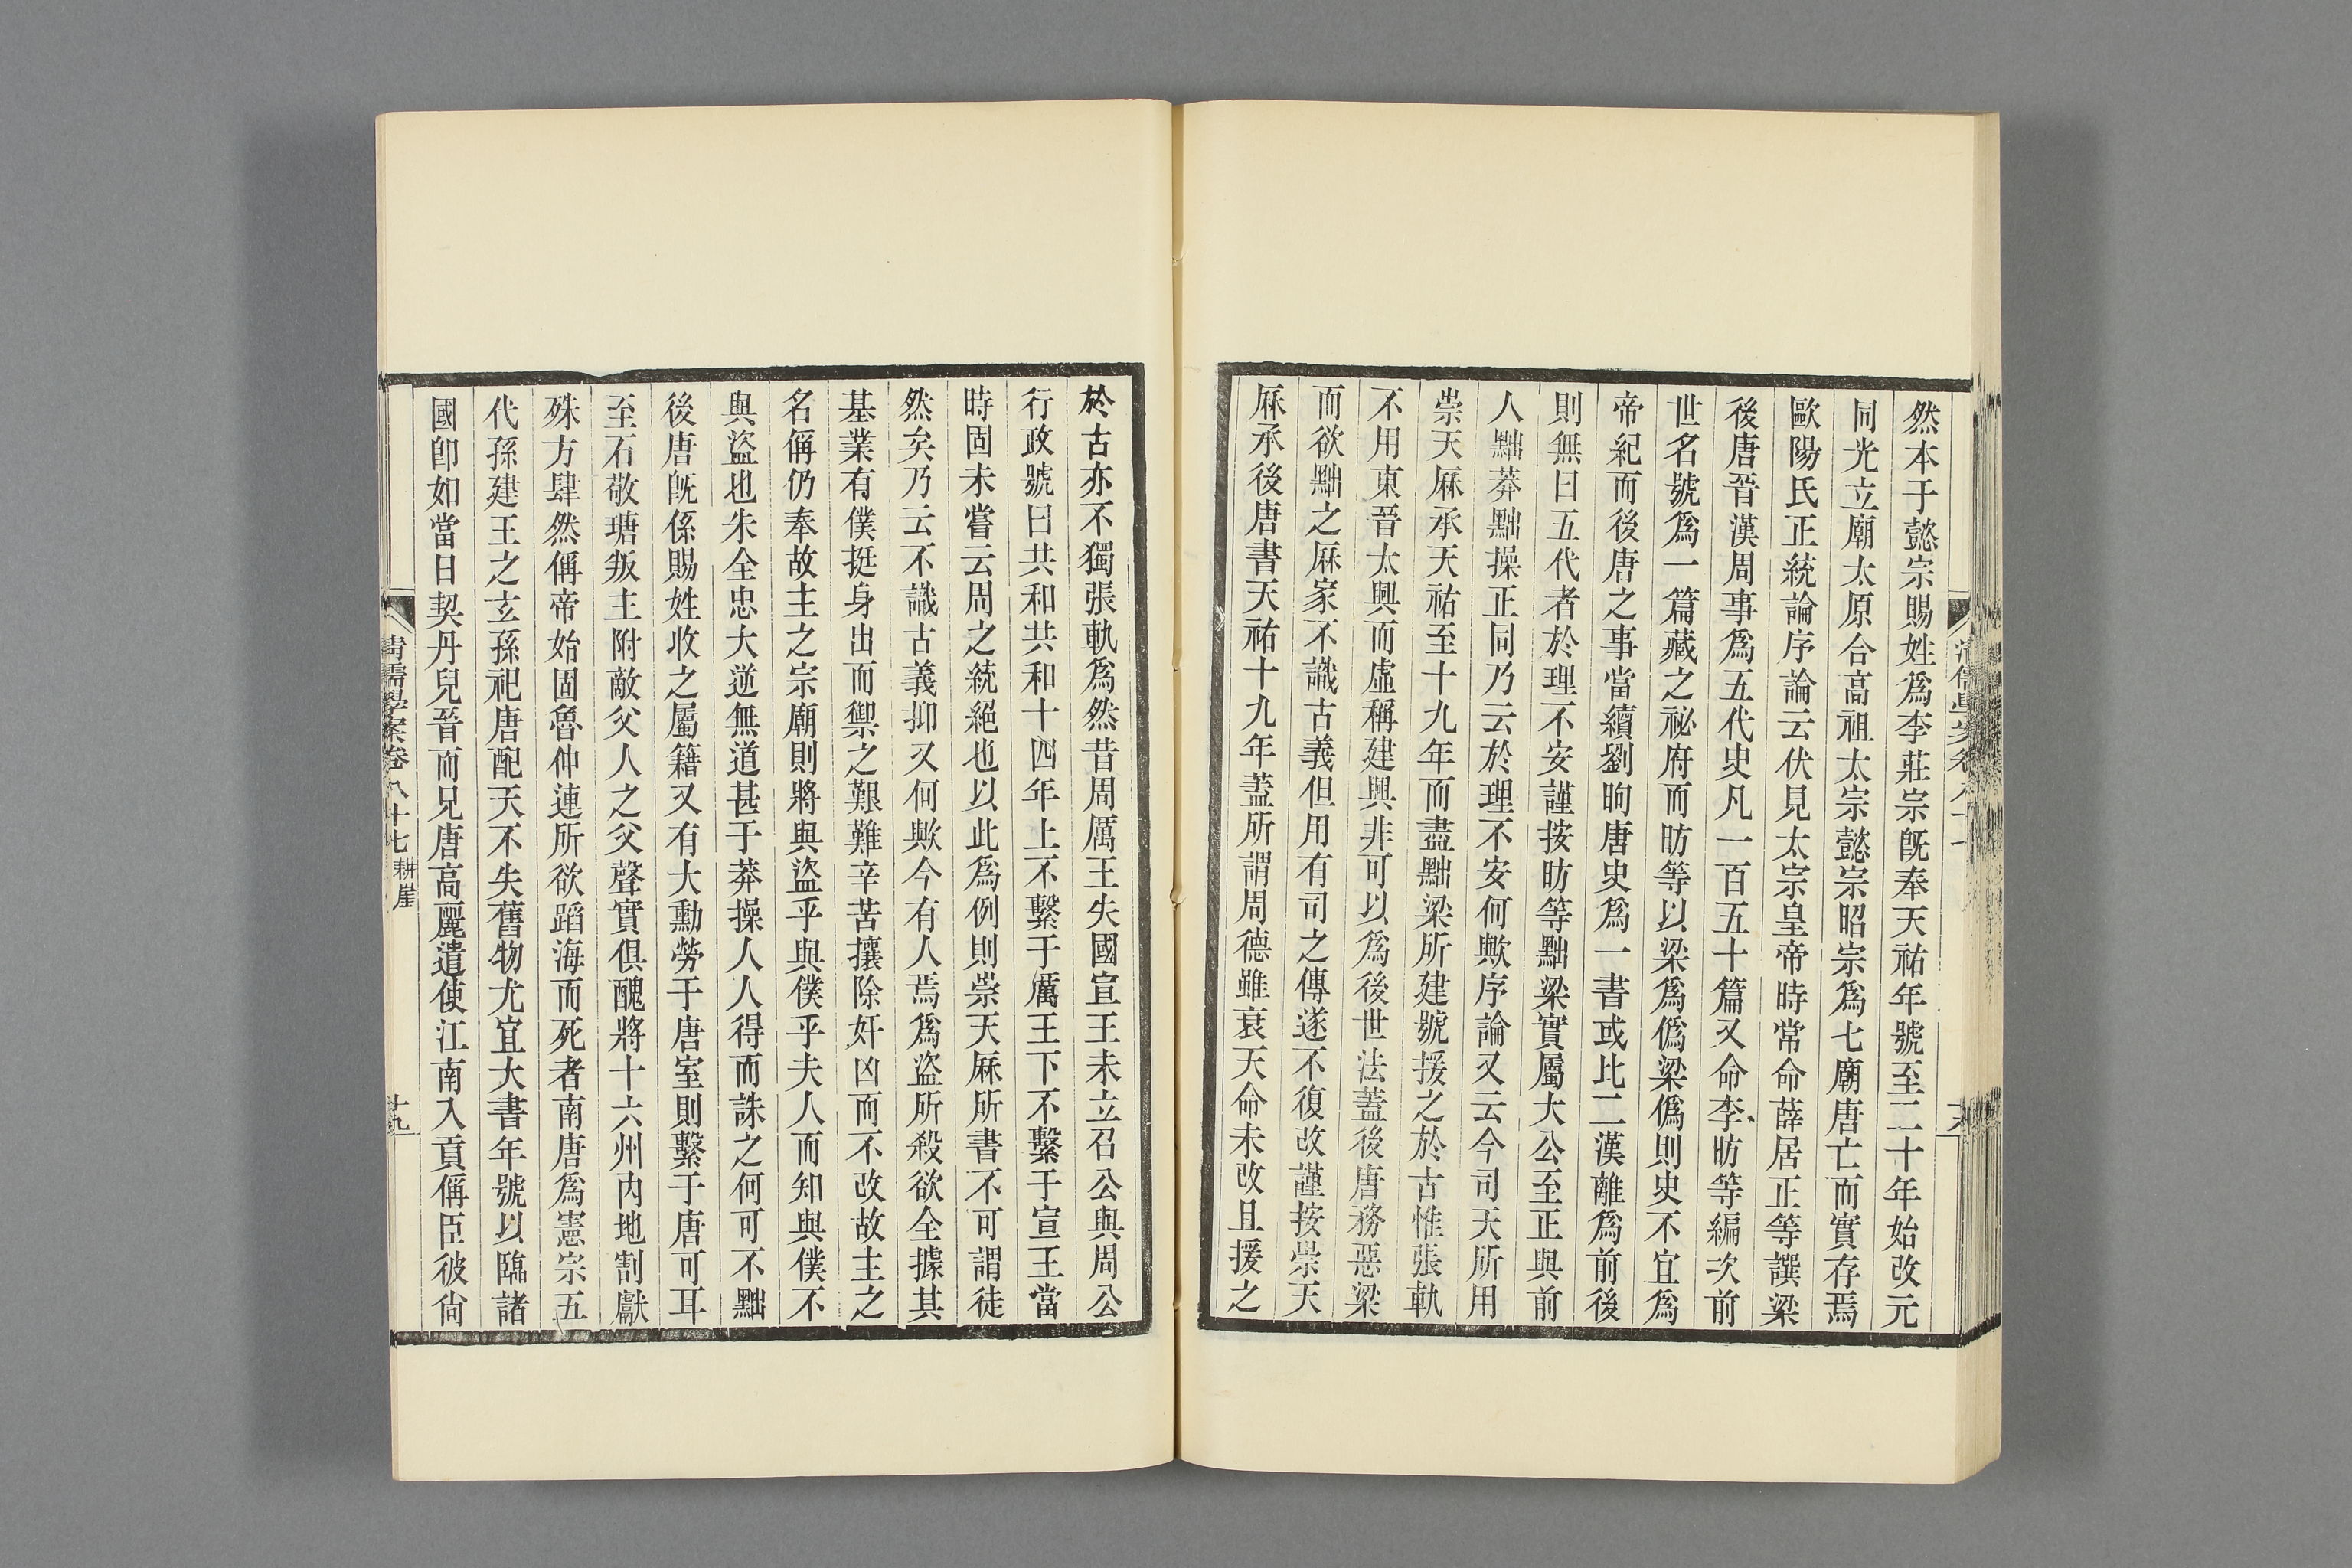 然本于懿宗賜姓爲李莊宗旣奉天祐年號至二十年始改元
同光立廟太原合高祖太宗懿宗昭宗爲七廟唐亡而實存焉
歐陽氏正統論序論云伏見太宗皇帝時常命薛居正等譔梁
後唐晉漢周事爲五代史凡一百五十篇又命李昉等編次前
世名號爲一篇藏之祕府而昉等以梁爲僞梁僞則史不宜爲
帝紀而後唐之事當續劉昫唐史爲一書或比二漢離爲前後
則無曰五代者於理不安謹按昉等黜梁實屬大公至正與前
人黜莽黜操正同乃云於理不安何歟序論又云今司天所用
崇天厤承天祐至十九年而盡黜梁所建號援之於古惟張軌
不用東晉太興而虛稱建興非可以爲後世法蓋後唐務惡梁
而欲黜之厤家不識古義但用有司之傳遂不復改謹按崇天
厤承後唐書天祐十九年蓋所謂周德雖衰天命未改且援之
於古亦不獨張軌爲然昔周厲王失國宣王未立召公與周公
行政號曰共和共和十四年上不繫于厲王下不繫于宣王當
時固未嘗云周之統絕也以此爲例則崇天厤所書不可謂徒
然矣乃云不識古義抑又何歟今有人焉爲盜所殺欲全據其
基業有僕挺身出而禦之艱難辛苦攘除奸凶而不改故主之
名偁仍奉故主之宗廟則將與盜乎與僕乎夫人而知與僕不
與盜也朱全忠大逆無道甚于莽操人人得而誅之何可不黜
後唐旣係賜姓收之屬籍又有大勳勞于唐室則繫于唐可耳
至石敬瑭叛主附敵父人之父聲實俱醜將十六州內地割獻
殊方肆然偁帝始固魯仲連所欲蹈海而死者南唐爲憲宗五
代孫建王之玄孫祀唐配天不失舊物尤宜大書年號以臨諸
國卽如當日契丹兒晉而兄唐高麗遣使江南入貢偁臣彼尙
清儒學案卷八十七 耕崖
十九